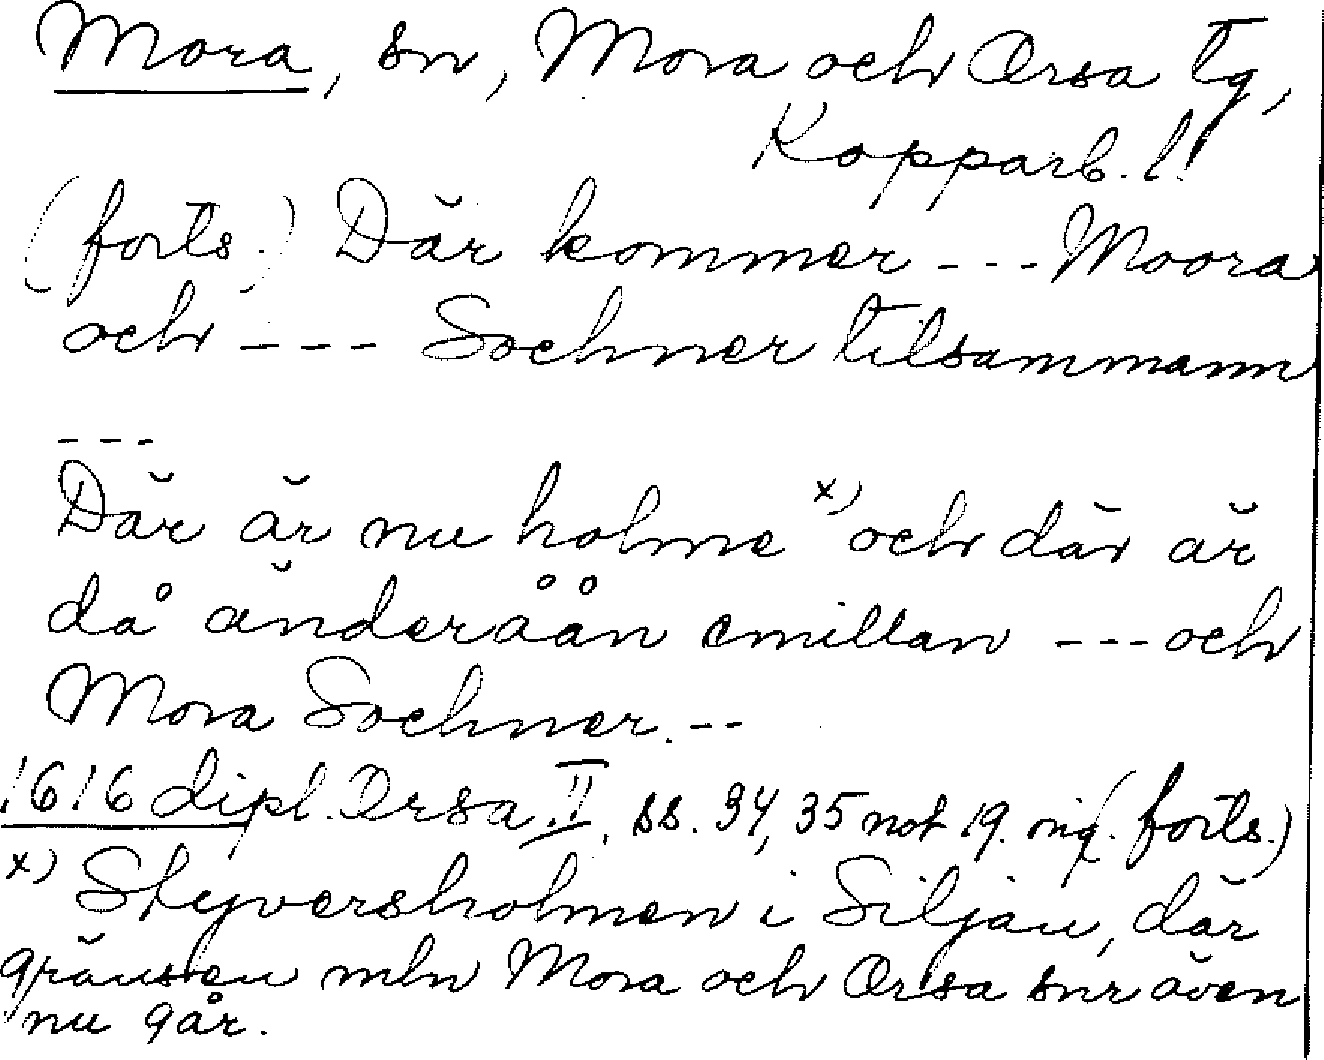 Mora, sn, Mora och Orsa tg,
Kopparb. l.
(forts.) Där kommer --- Moora
och --- Sochner tilsammann
---
Där är nu holme x) och där är
då änderåån emillan --- och
Mora Sochner. --
1616 dipl. Orsa II, ss. 34, 35 not 19. orig. (forts.)
x) Styversholmen i Siljan, där
gränsen mln Mora och Orsa snr även
nu går.